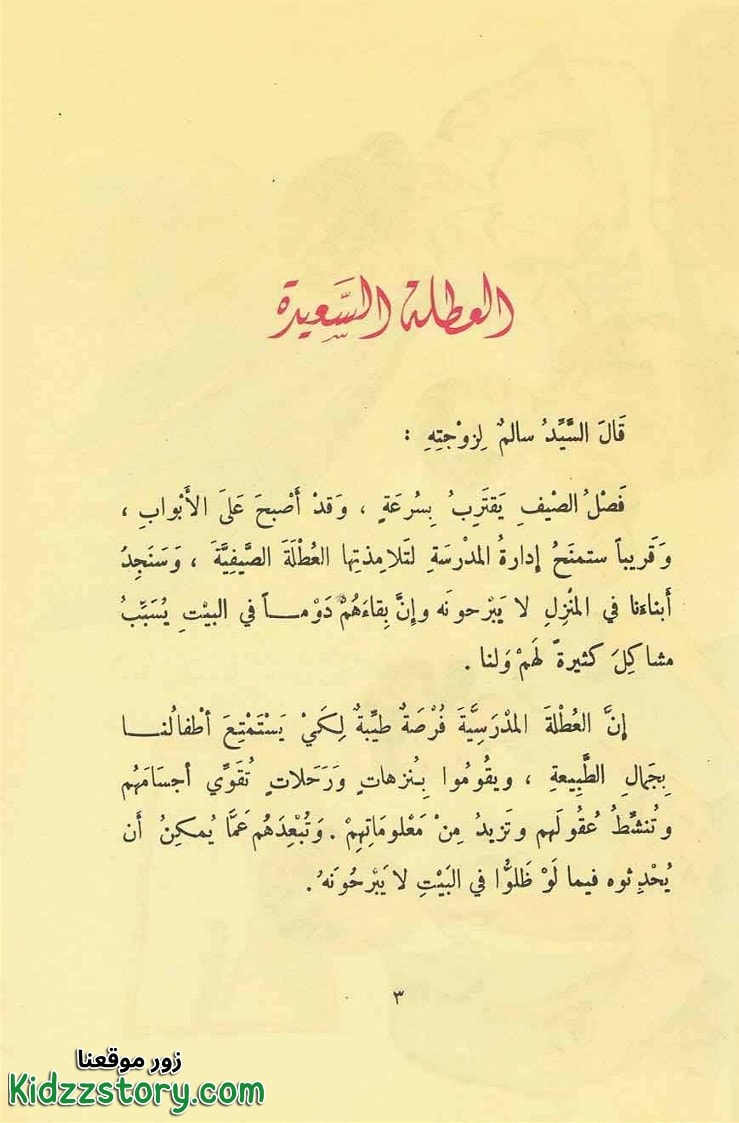 العطلة السَّعيدة
قَالَ السَّيِّدُ سالمٌ لِزوْجتِهِ :
فَصْلُ الصْيفِ يَقتَرِبُ بِسُرعَةٍ ، وَقدْ أَصْبحَ عَلىَ الأَبْوابِ ،
وَقَريباً ستمنَحُ إدارةُ المدْرسَةِ لتَلامِذتِها العُطْلَةَ الصَّيفِيَّةَ ، وَسَنَجِدُ
أَبناءَنا في المنْزِلِ لا يَبْرحونَه وإنَّ بقاءَهُمْ دَوْمـــاً في البيْتِ يُسَبِّبُ
مشاكِلَ كثيرةً لهَمْ وَلنا .
إنَّ العُطْلةَ المدْرَسِيَّةَ فُرْصَةٌ طيِّبةٌ لِكَيْ يَسْتَمْتِعَ أطفالُنـــا
بِجَمالِ الطَّبِيعةِ ، ويقُومُوا بِـنُزهاتٍ وَرَحَلاتٍ تُقَوِّي أجسَامَهُم
وتُنشِّطُ عُقولَهم وتَزيدُ مِنْ مَعْلوماتِهِمْ . وَتُبْعِدَهُم عَمَّا يُمكِنُ أن
يُحْدِثوه فيما لَوْ ظَلوُّا في البَيْتِ لا يَبْرحُونَهُ .
٣
زور موقعنا
Kidzzstory.com